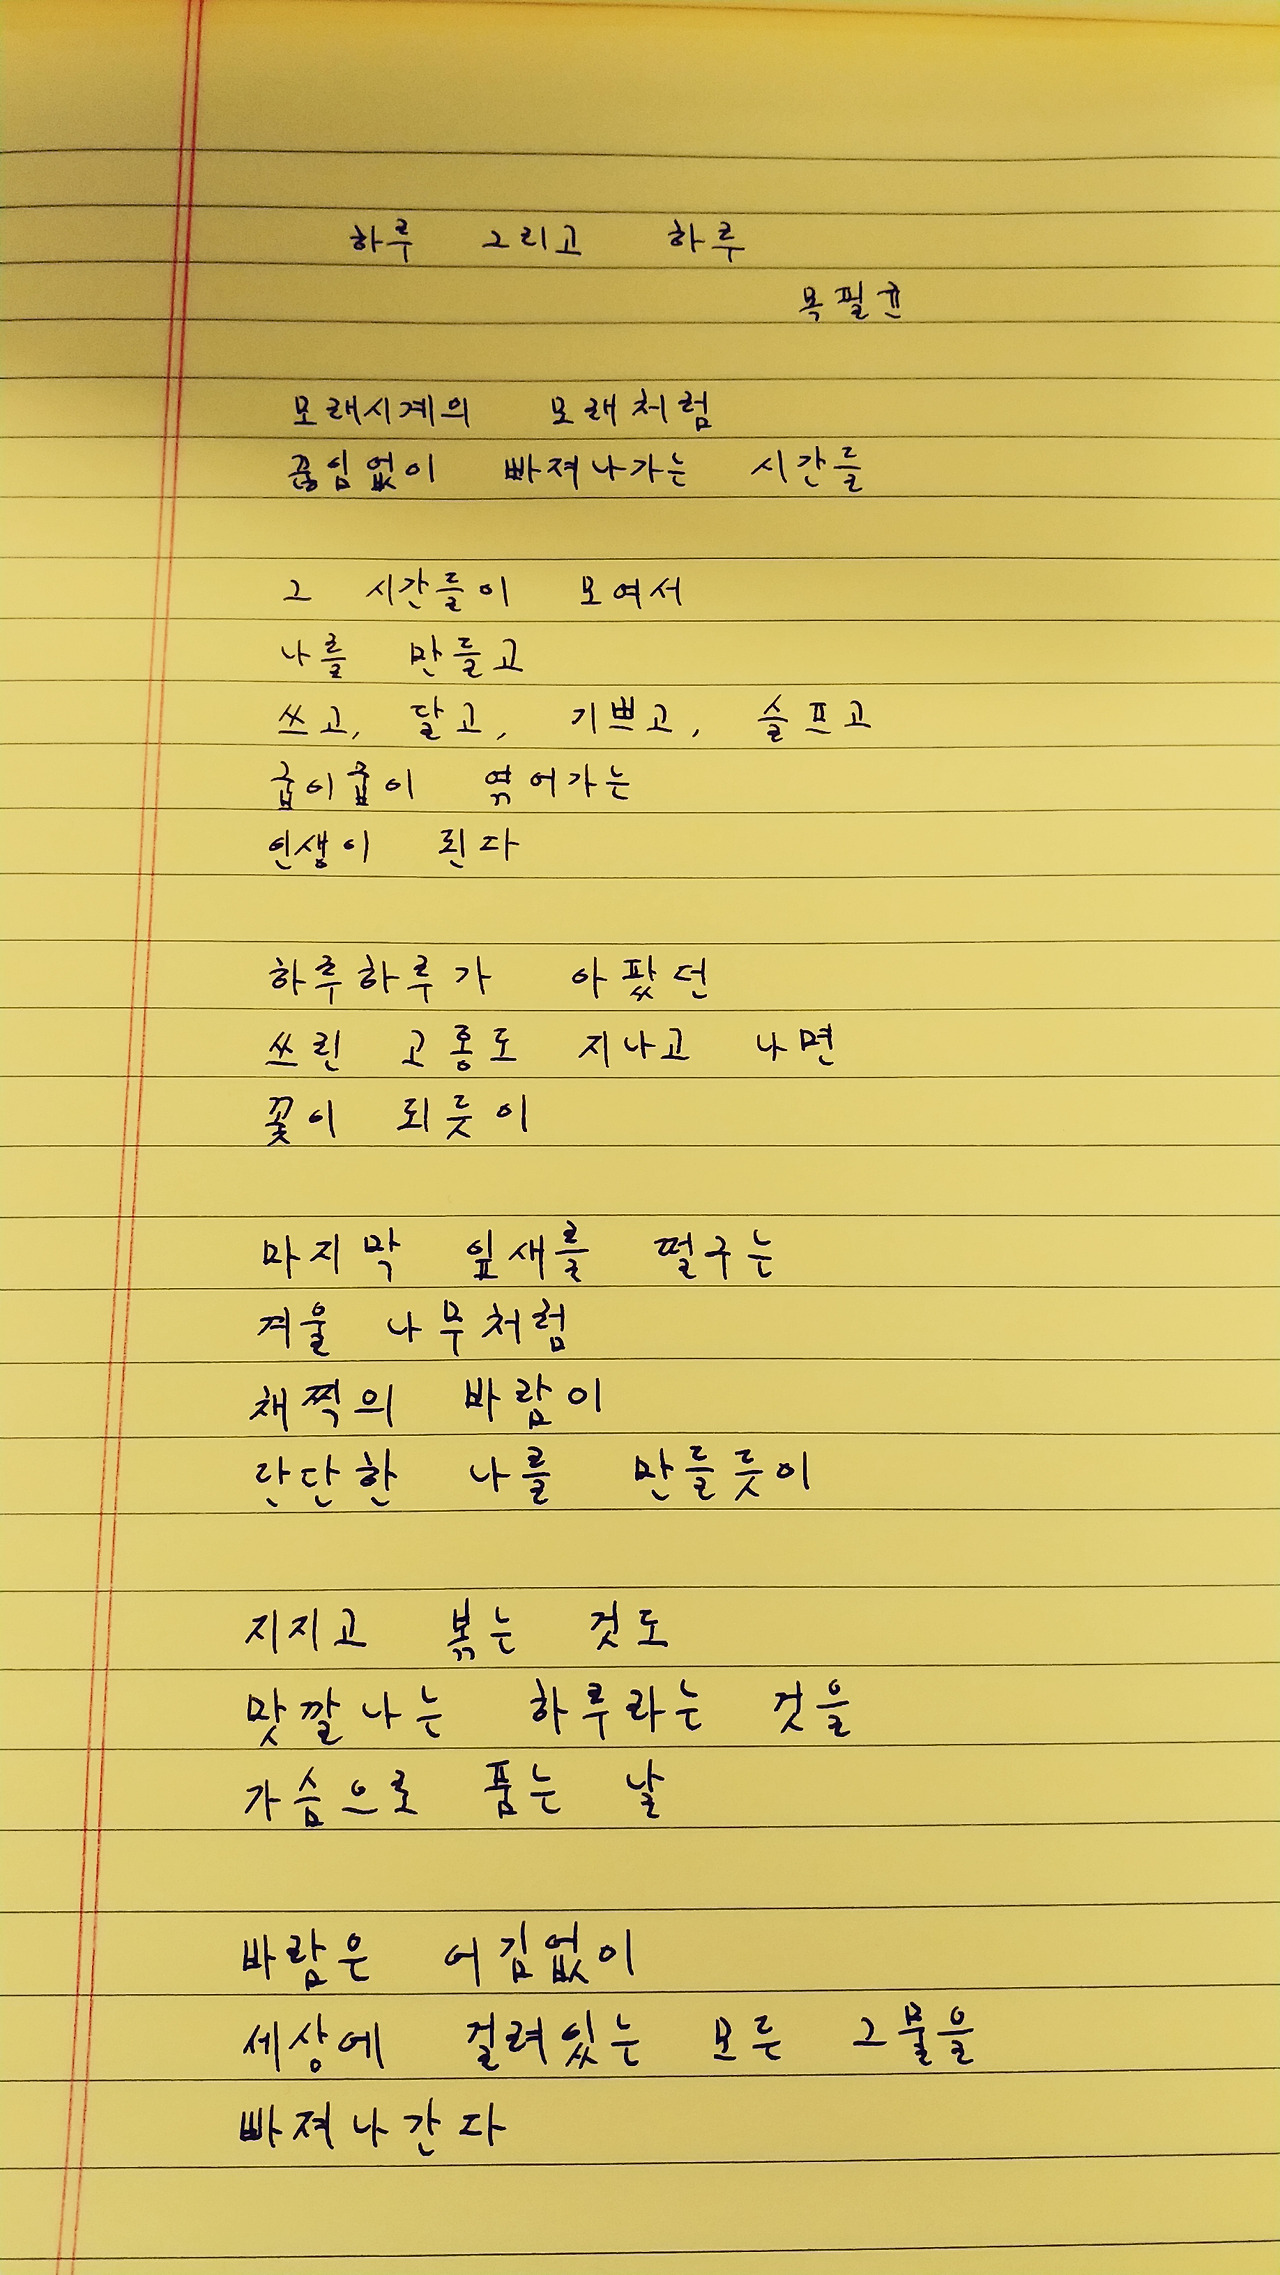 하루 그리고 하루
목필균
모래시계의 모래처럼
끊임없이 빠져나가는 시간들
그 시간들이 모여서
나를 만들고
쓰고, 달고, 기쁘고, 슬프고
굽이굽이 엮어가는
인생이 된다
하루하루가 아팠던
쓰린 고통도 지나고 나면
꽃이 되듯이
마지막 잎새를 떨구는
겨울 나무처럼
채찍의 바람이
단단한 나를 만들듯이
지지고 볶는 것도
맛깔나는 하루라는 것을
가슴으로 품는 날
바람은 어김없이
세상에 걸려있는 모든 그물을
빠져나간다